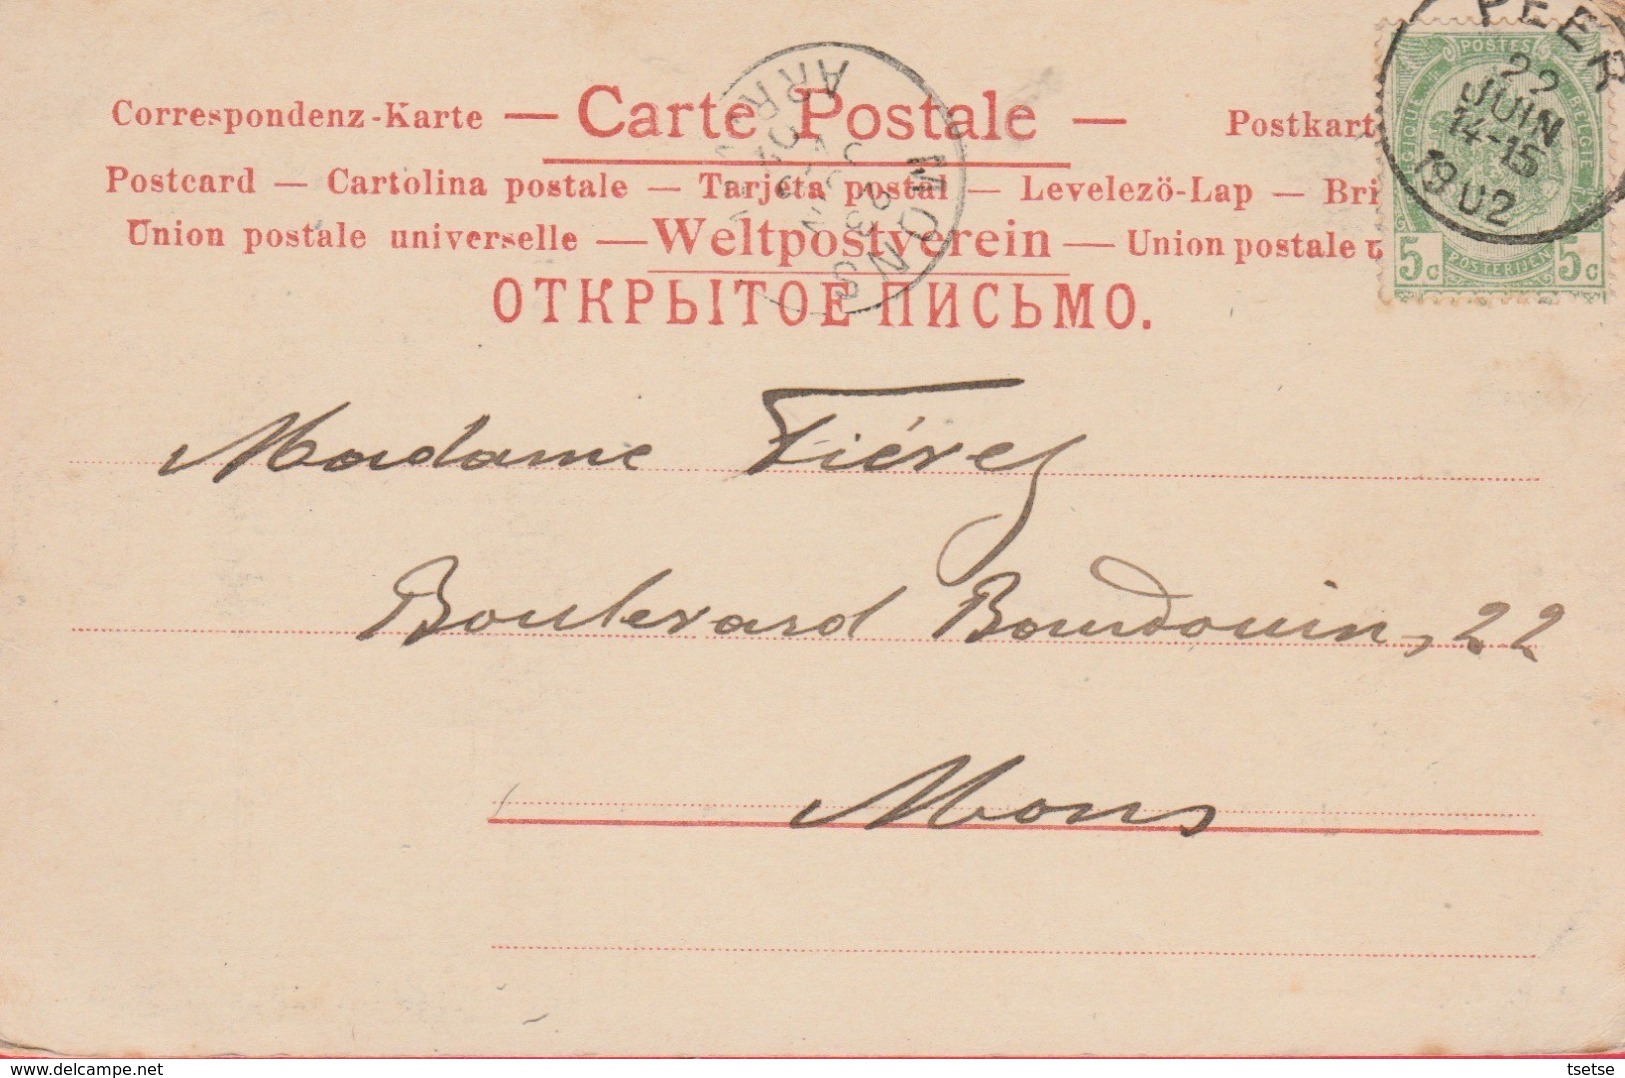 Correspondenz-Karte — Carte Postale — Postkart
Postcard — Cartolina postale — Tarjeta postal — Levelezö-Lap — Bri
Union postale universelle — Weltpostverein — Union postale u
ОТКРЫТОЕ ПИСЬМО.
PEER
22
JUIN
14-15
1902
POSTES
BELGIQUE
BELGIË
POSTERIJEN
5c 5c
MONS
Madame Fiévez
Boulevard Baudouin, 22
Mons
delcampe.net
tsetse